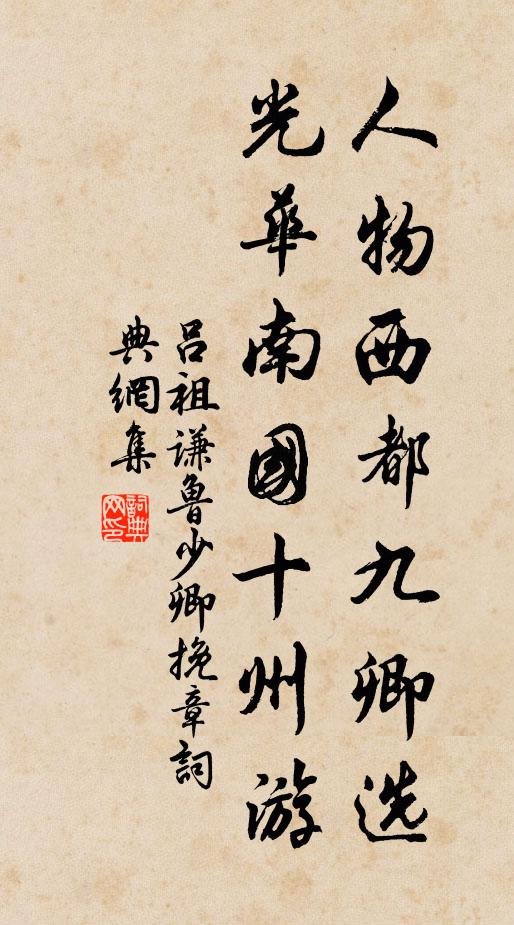 人物西都九卿选
光華南國十州游
呂祖谦魯少卿挽章詞
典網集
詞典網印